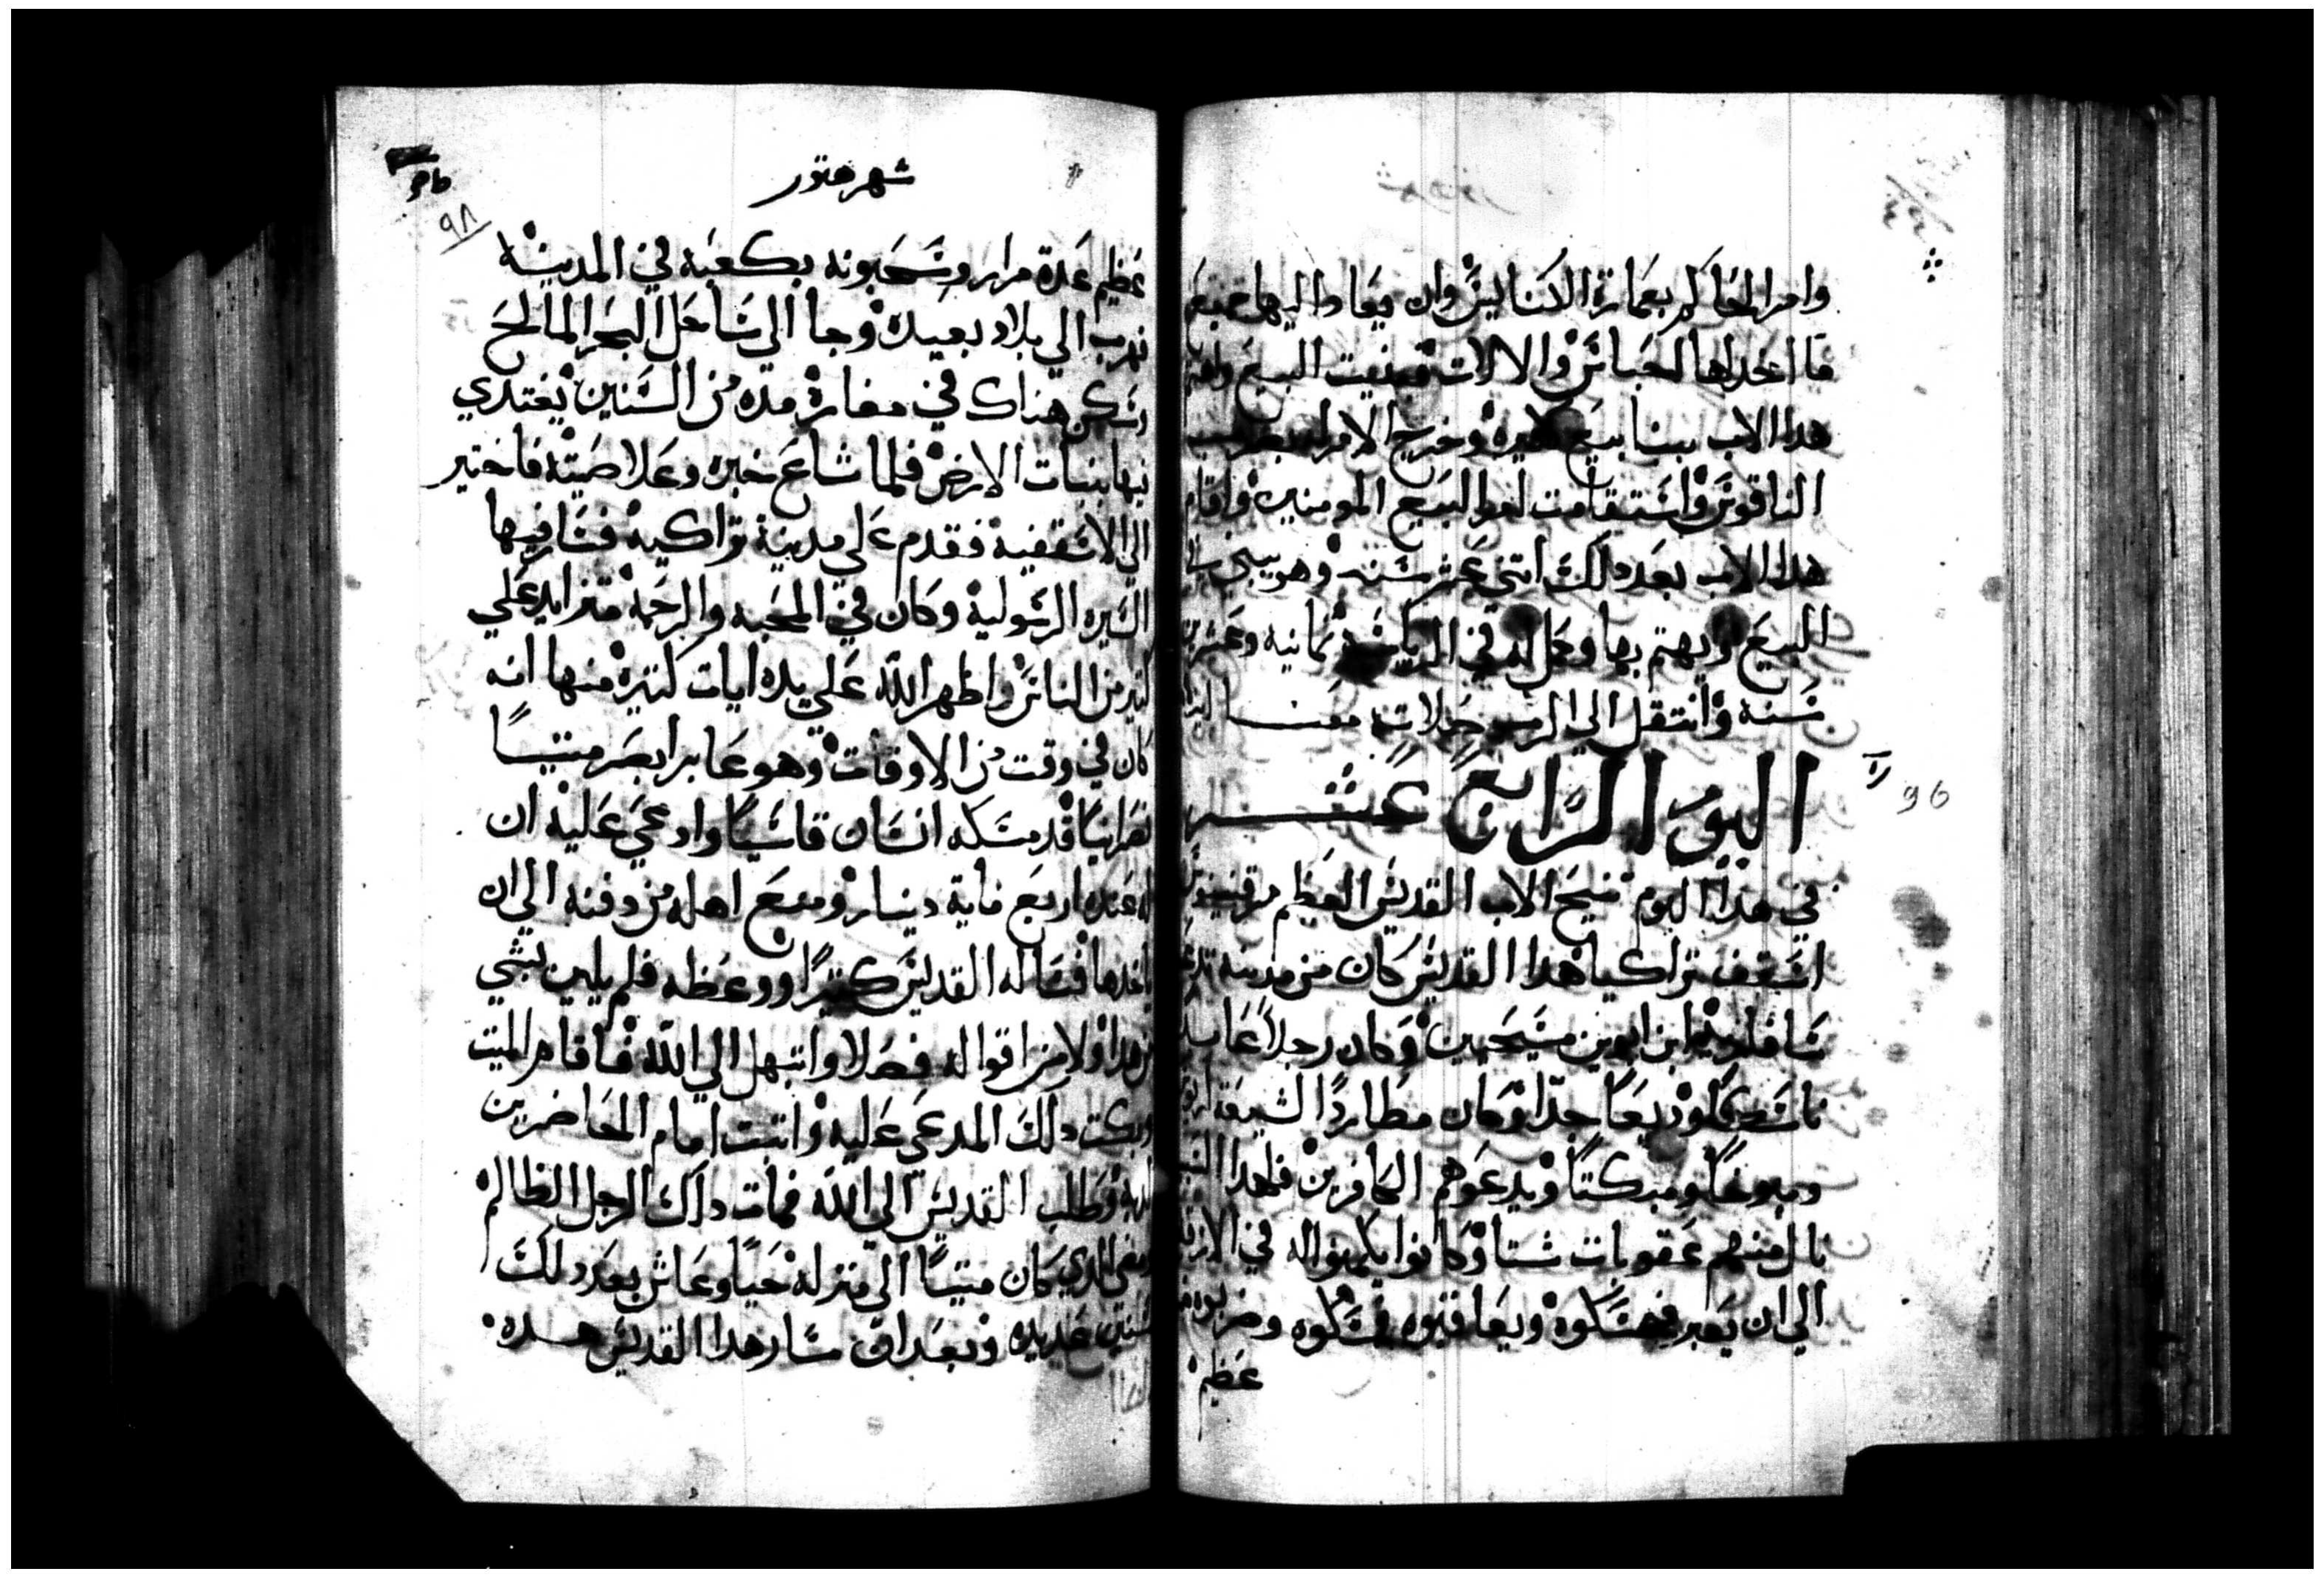 وامر الحاكم بعمارة الكنايس وان يعاد اليها جميع
ما اخد لها الحبائس والالات فبنيت البيع واهتم
هدا الاب ببنا بيع كثيره وخرج الامر له بضرب
الناقوس واستقامت امور البيع المومنين واقام
هدا الاب بعد دلك اتنى عشر سنه وهو يبني في
البيع ويهتم بها وكمل له في الرياسه تمانيه وعشرين
سنه وانتقل الي الرب صلاته معنا
اليوم الرابع عشر
96
في هدا اليوم تنيح الاب القديس العظيم مرتينوس
اسقف تراكيا هدا القديس كان من مدينه تدعى
سافاريه ابن ابوين مسيحيين وكان رجلا عابد
ناسكا وديعا جدا وكان مطاردا لشيعة اريوس
ومبوعا ومبكتا ويدعوهم الكافرين فلهدا
نال منهم عقوبات شتا وكانوا يكمنوا له في
الي ان يعبر فيمسكوه ويعاقبوه فمسكوه وضربوه
عظيم
شهر هتور
98
عظيم عدة مرار وسحبونه بكعبه في المدينه
فهرب الي بلاد بعيده وجا الي شاحل البحر المالح
وسكن هناك في مغارة مده من السنين يغتدي
فيها بنبات الارض فلما شاع خبره وعلا صيته فاختير
الي الاسقفيه فقدم علي مدينة تراكيه فسار فيها
السيره الرسوليه وكان في المحبه والرحمه متزايد علي
كتير من الناس واظهر الله علي يده ايات كتيره منها انه
كان في وقت من الاوقات وهو عابر ابصر ميتا
نصرانيا قد مسكه انسان قاسيا وادعي عليه ان
له عنده اربع ماية دينار ومنع اهله من دفنه الي ان
ياخدها فساله القديس كتيرا ووعظه فلم يلين بشي
من هدا ولا من اقواله فصلا وابتهل الي الله فاقام الميت
وبكت دلك المدعي عليه واتبت امام الحاضرين
كدبه وطلب القديس الي الله فمات داك الرجل الظالم
ومضي الدي كان ميتا الي منزله حيا وعاش بعد دلك
سنين عديده وبعد ان سار هدا القديس هده